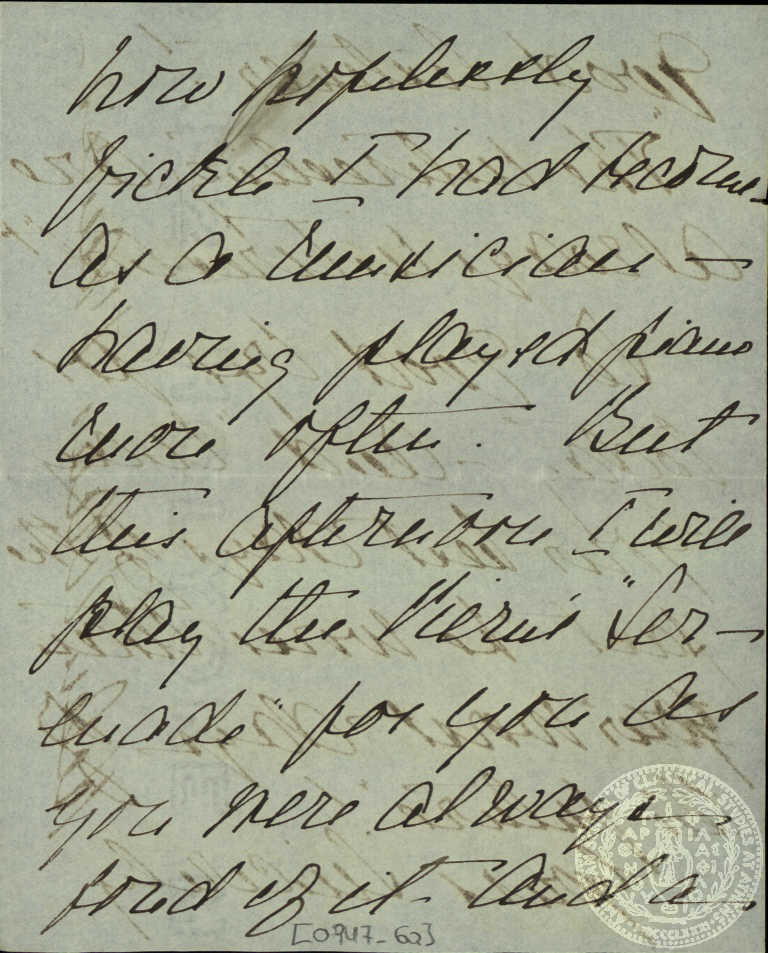 how hopelessly
fickle I had become
as a musician —
having played piano
more often. But
this afternoon I will
play the Pierné "Ser-
enade" for you as
you were always
fond of it. And a
[0947-6a]